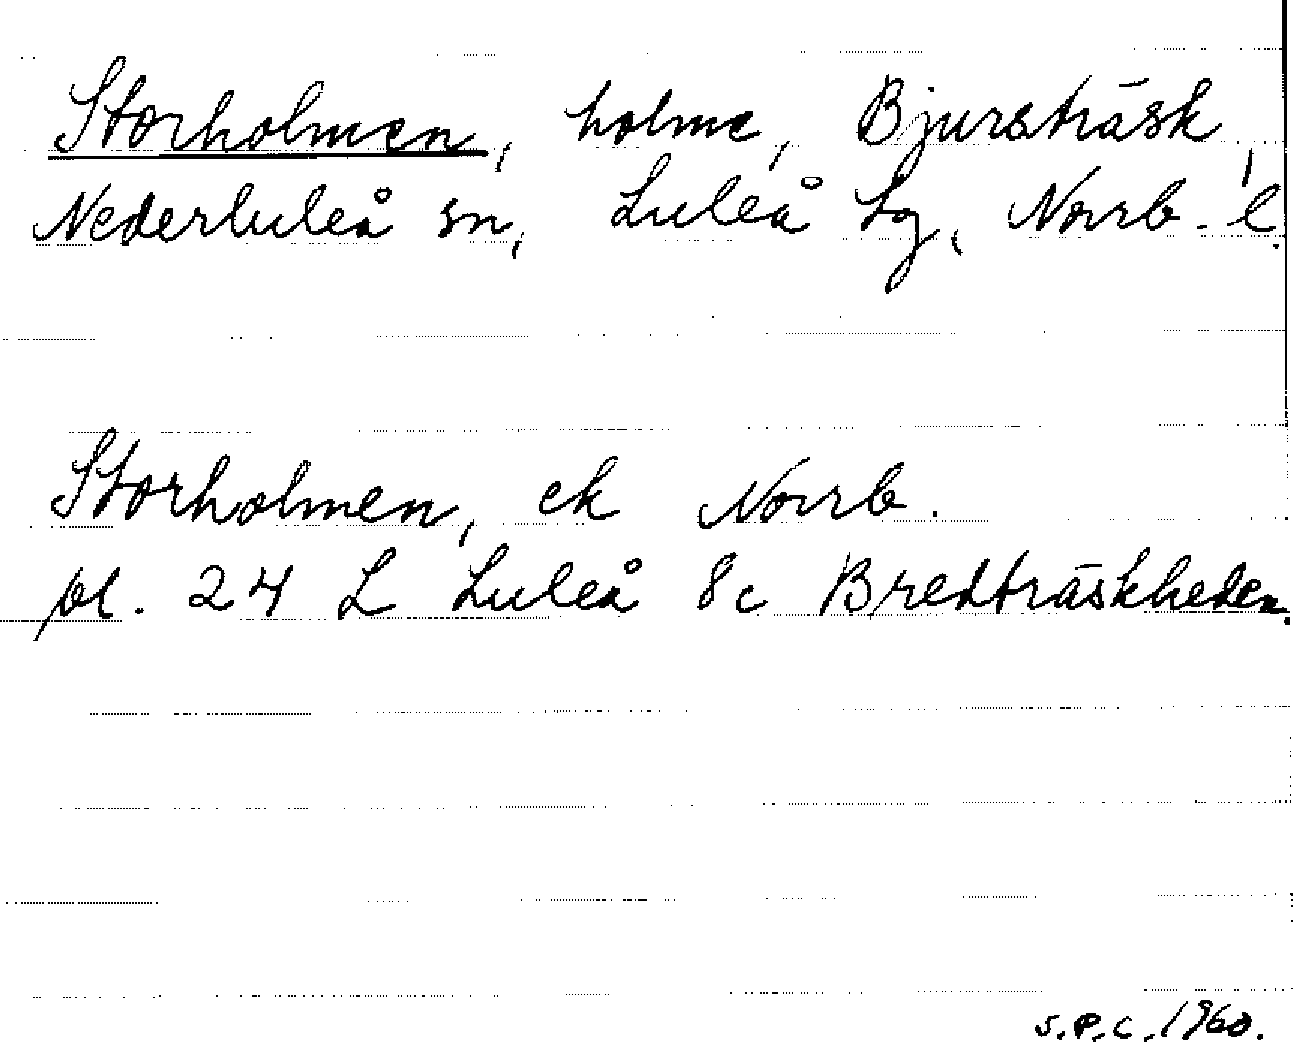 Storholmen, holme, Bjursträsk,
Nederluleå sn, Luleå tg, Norrb. l.
Storholmen, ek Norrb.
bl. 24 L Luleå 8c Bredträskheden.
S.P.C. 1960.